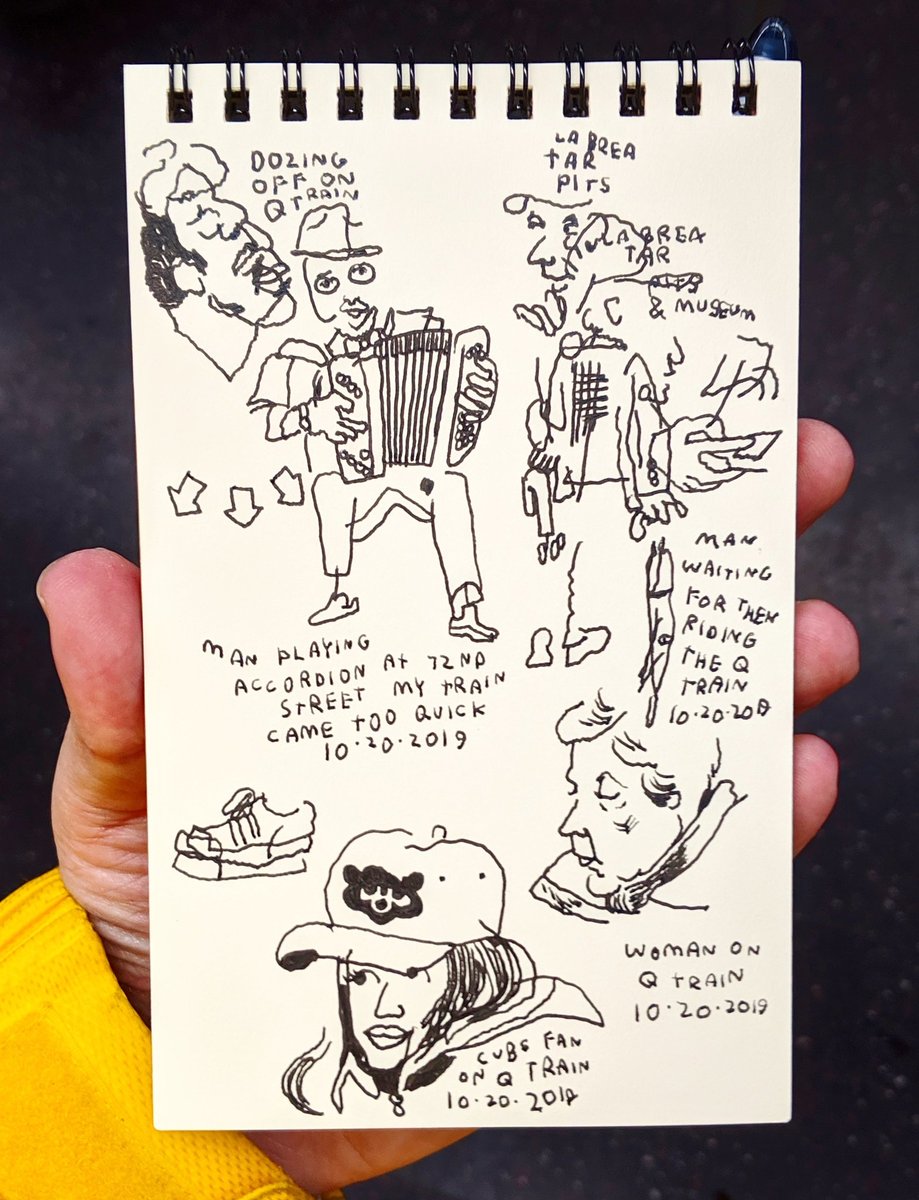 DOZING
OFF ON
Q TRAIN
LA BREA
TAR
PITS
LA BREA
TAR
PITS
& MUSEUM
MAN PLAYING
ACCORDION AT 72ND
STREET MY TRAIN
CAME TOO QUICK
10.20.2019
MAN
WAITING
FOR THEN
RIDING
THE Q
TRAIN
10.20.2019
WOMAN ON
Q TRAIN
10.20.2019
CUBS FAN
ON Q TRAIN
10.20.2019